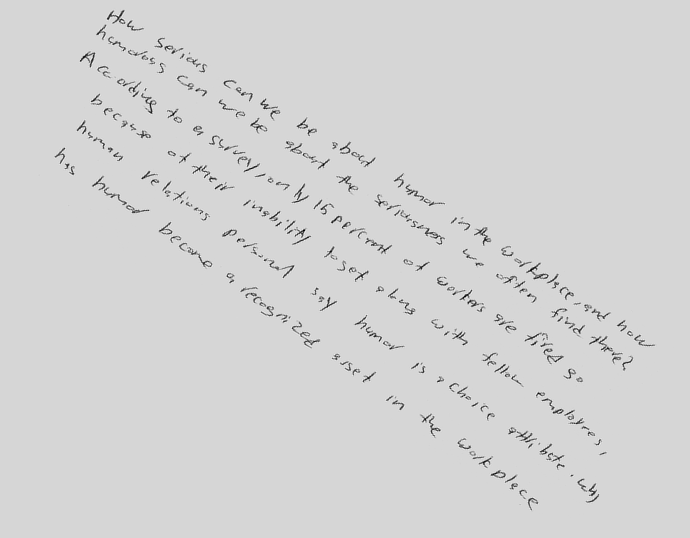 How serious can we be about humor in the workplace, and how
humorous can we be about the seriousness we often find there?
According to a survey, only 15 percent of workers are fired so
because of their inability to get along with fellow employees,
human relations personal say humor is a choice attribute. Why
has humor become a recognized asset in the workplace